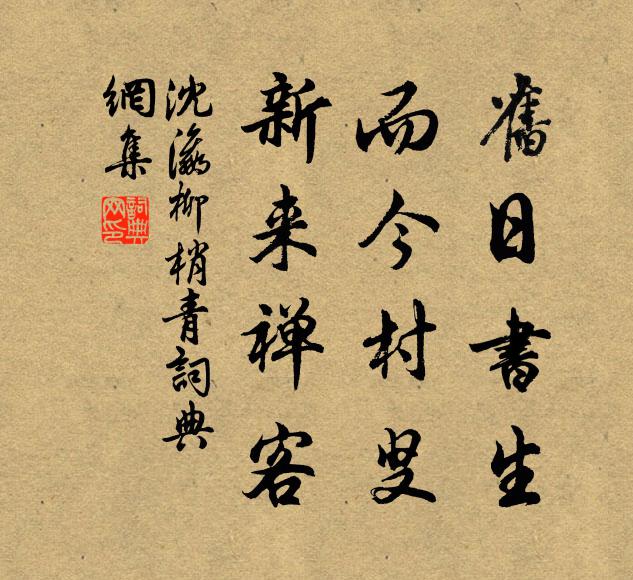 舊日書生
而今村叟
新来禅客
沈瀛柳梢青詞典
網集
詞典网印